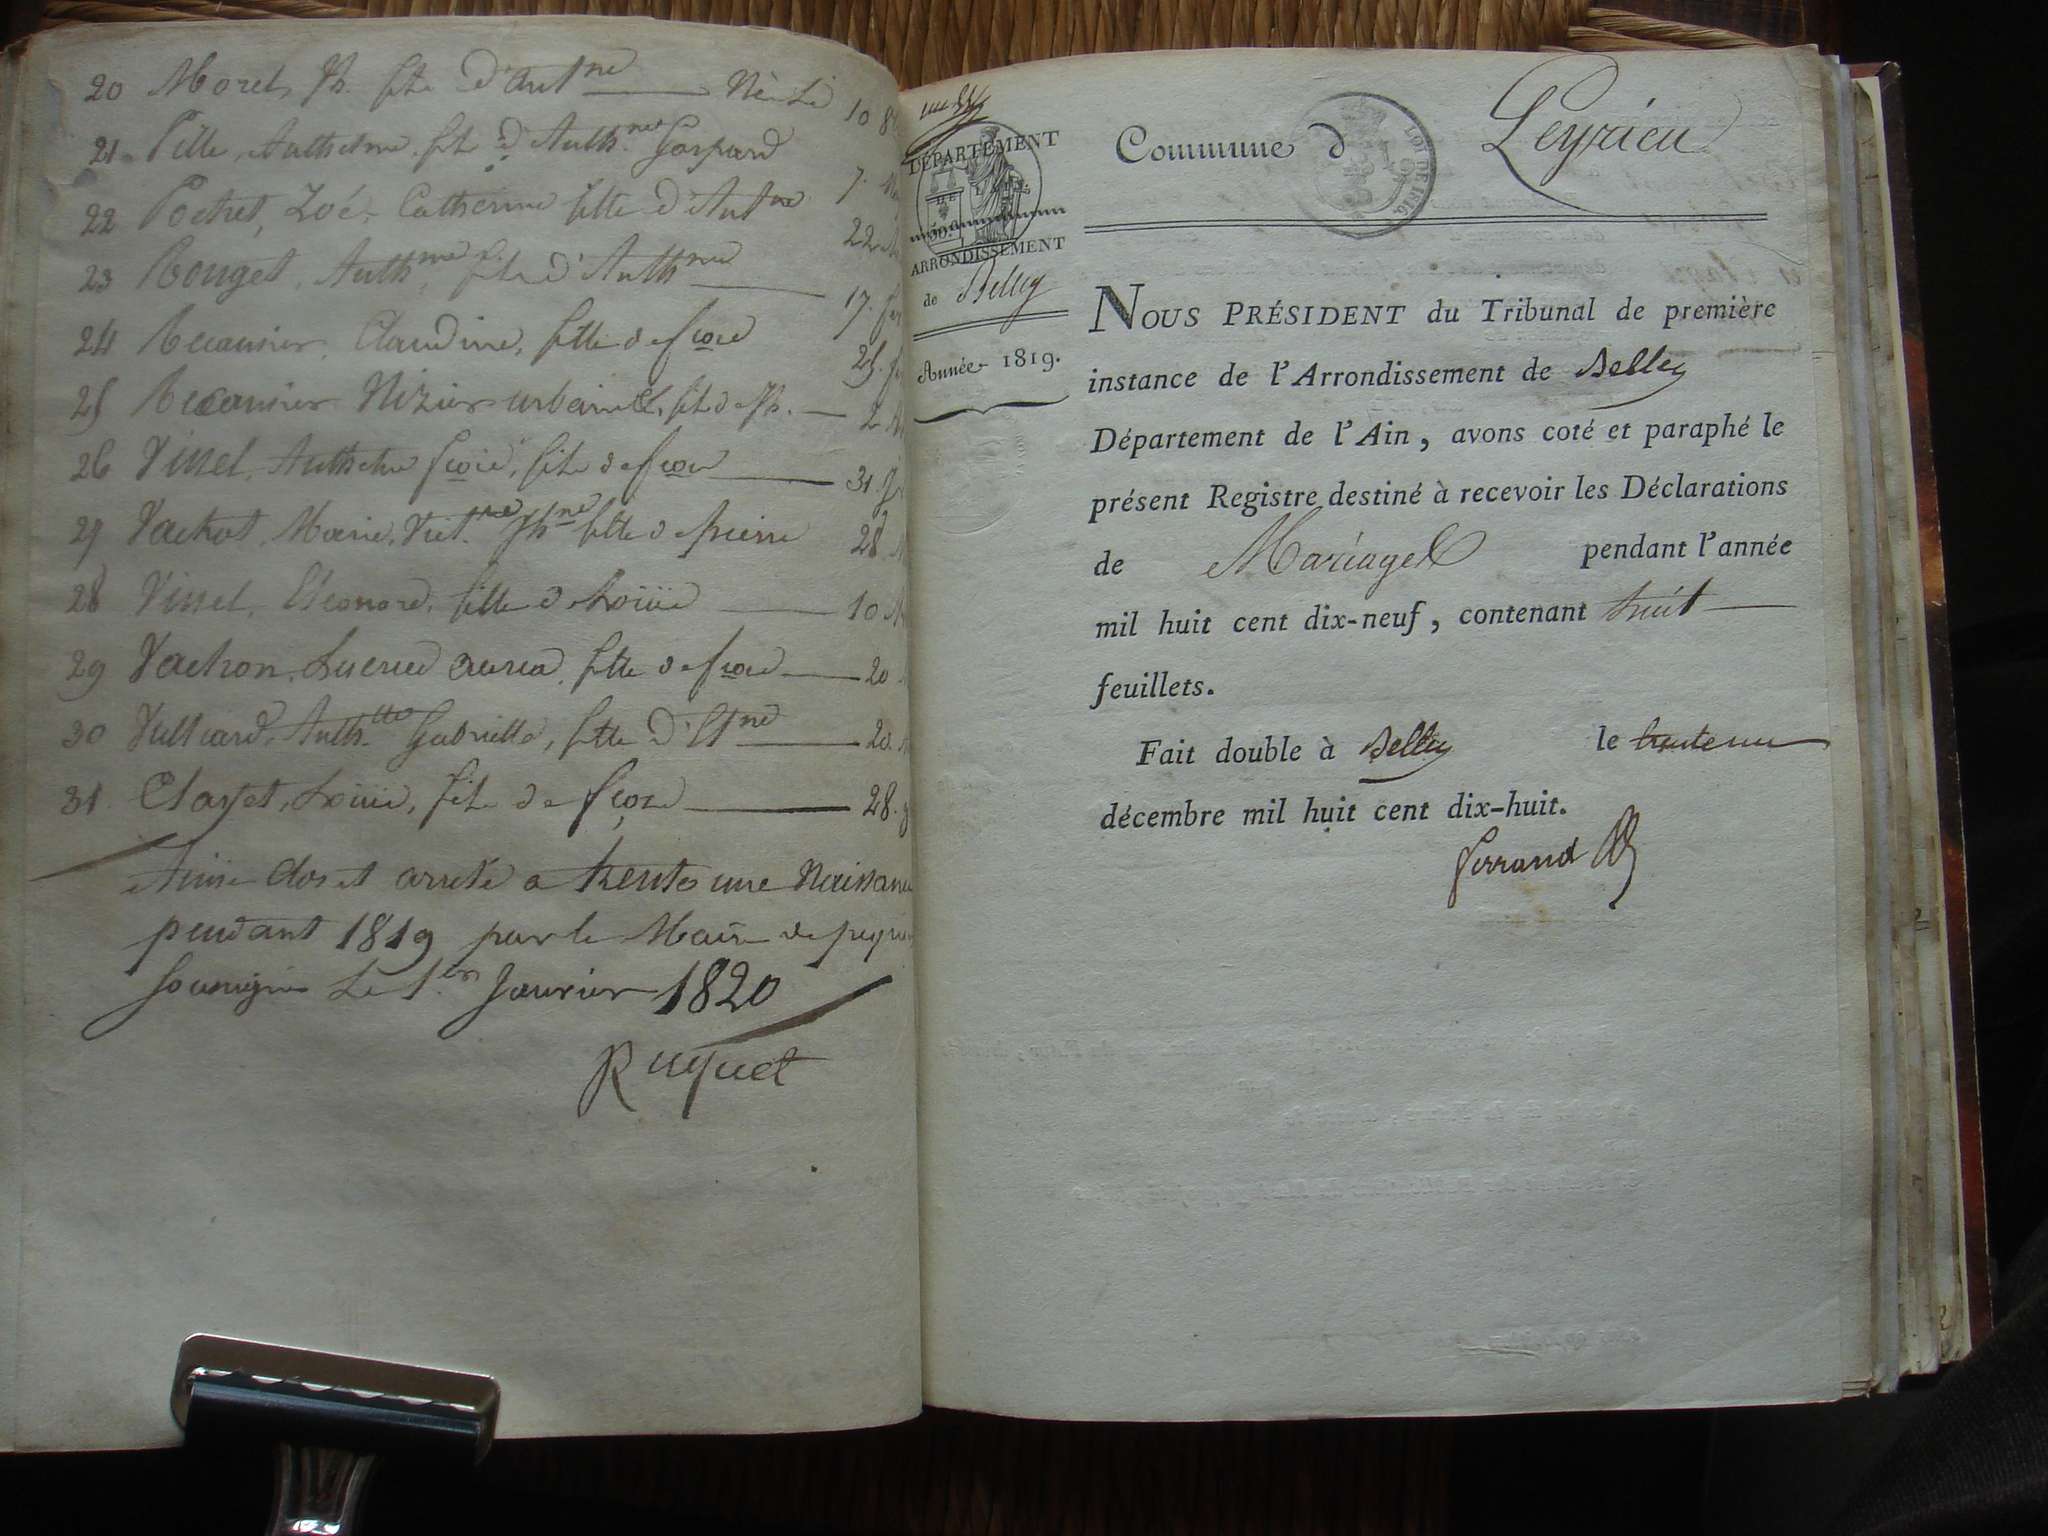 20 Morel, Jh. fils d'Antne Né le 10
21. Pille, Anthelme, fils d'Anth.me Gaspard 7.
22 Pochet, Zoé, Catherine fille d'Antne 22
23 Rouget, Anthme fils d'Anthme 17.
24 Récamier, Claudine, fille de fçois 25.
25 Récamier Nizier urbain, fils de Jh. 2
26 Vinet, Anthelme fçois, fils de fçois 31.
27 Vachot, Marie, Vict.re Jhne fille de pierre 28
28 Vinet, Eléonore, fille de Louis 10
29 Vachon, fille de fçois 20
30 Vulliard, Anth.tte Gabrielle, fille d'Etne 20.
31. Clayet, Louis, fils de fçois 28.
Ainsi clos et arrêté a trente une Naissances
pendant 1819 par le Maire de peyrieu
soussigné Le 1.er Janvier 1820
Ruquet
DÉPARTEMENT
DE L'AIN
ARRONDISSEMENT
de Belley
Année 1819.
Commune d Peyrieu
LOI DE 1816.
NOUS PRÉSIDENT du Tribunal de première
instance de l'Arrondissement de Belley
Département de l'Ain, avons coté et paraphé le
présent Registre destiné à recevoir les Déclarations
de Mariages pendant l'année
mil huit cent dix-neuf, contenant huit
feuillets.
Fait double à Belley le trente un
décembre mil huit cent dix-huit.
Ferrand